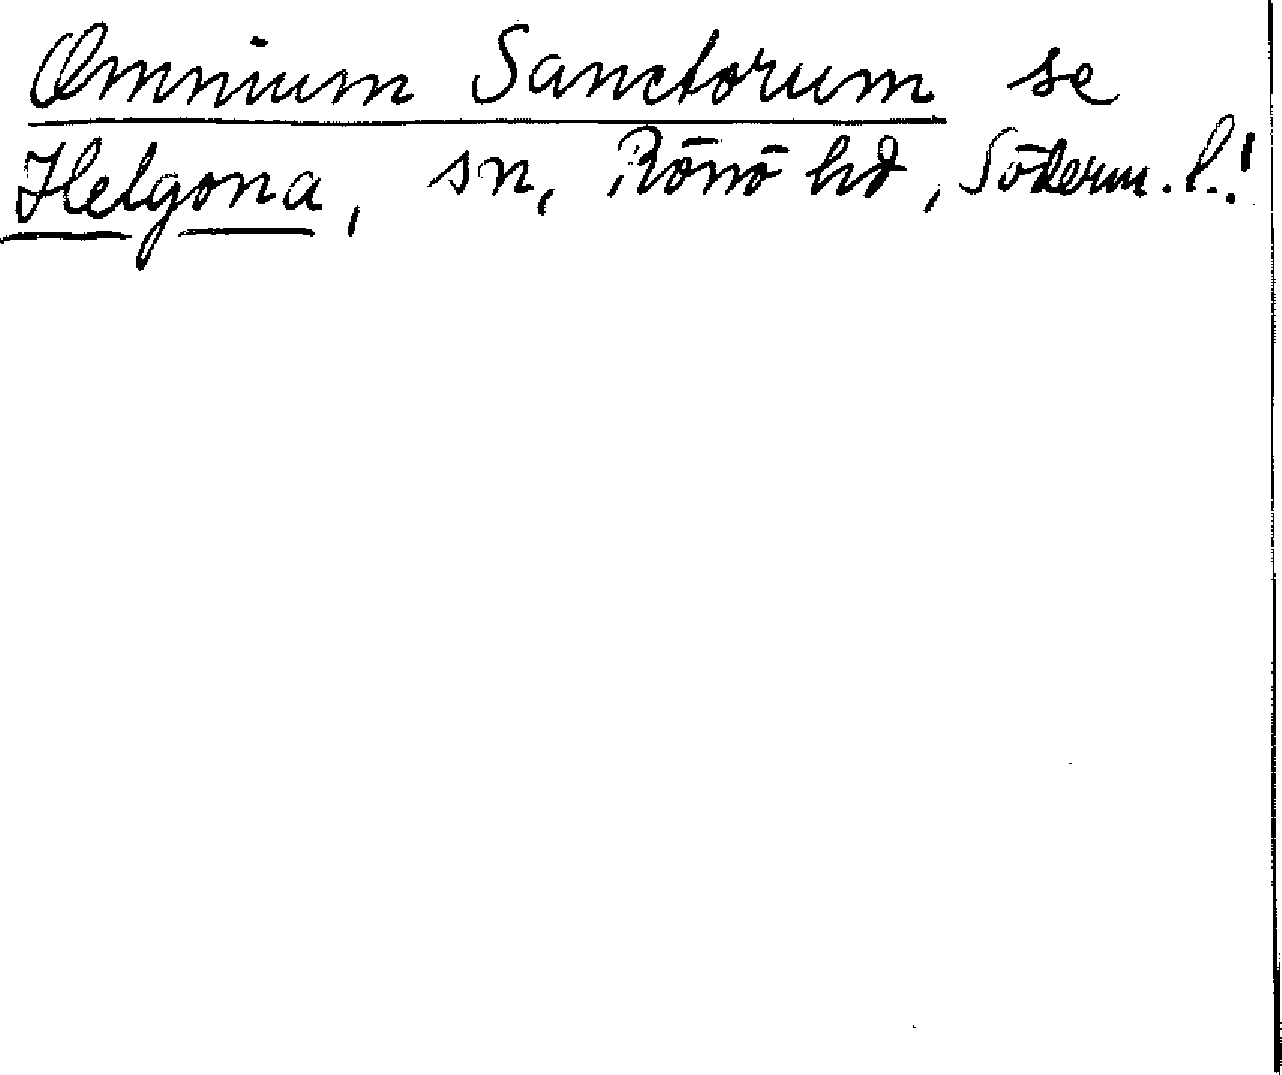 Omnium Sanctorum se
Helgona, sn, Rönö hd, Söderm. l.!